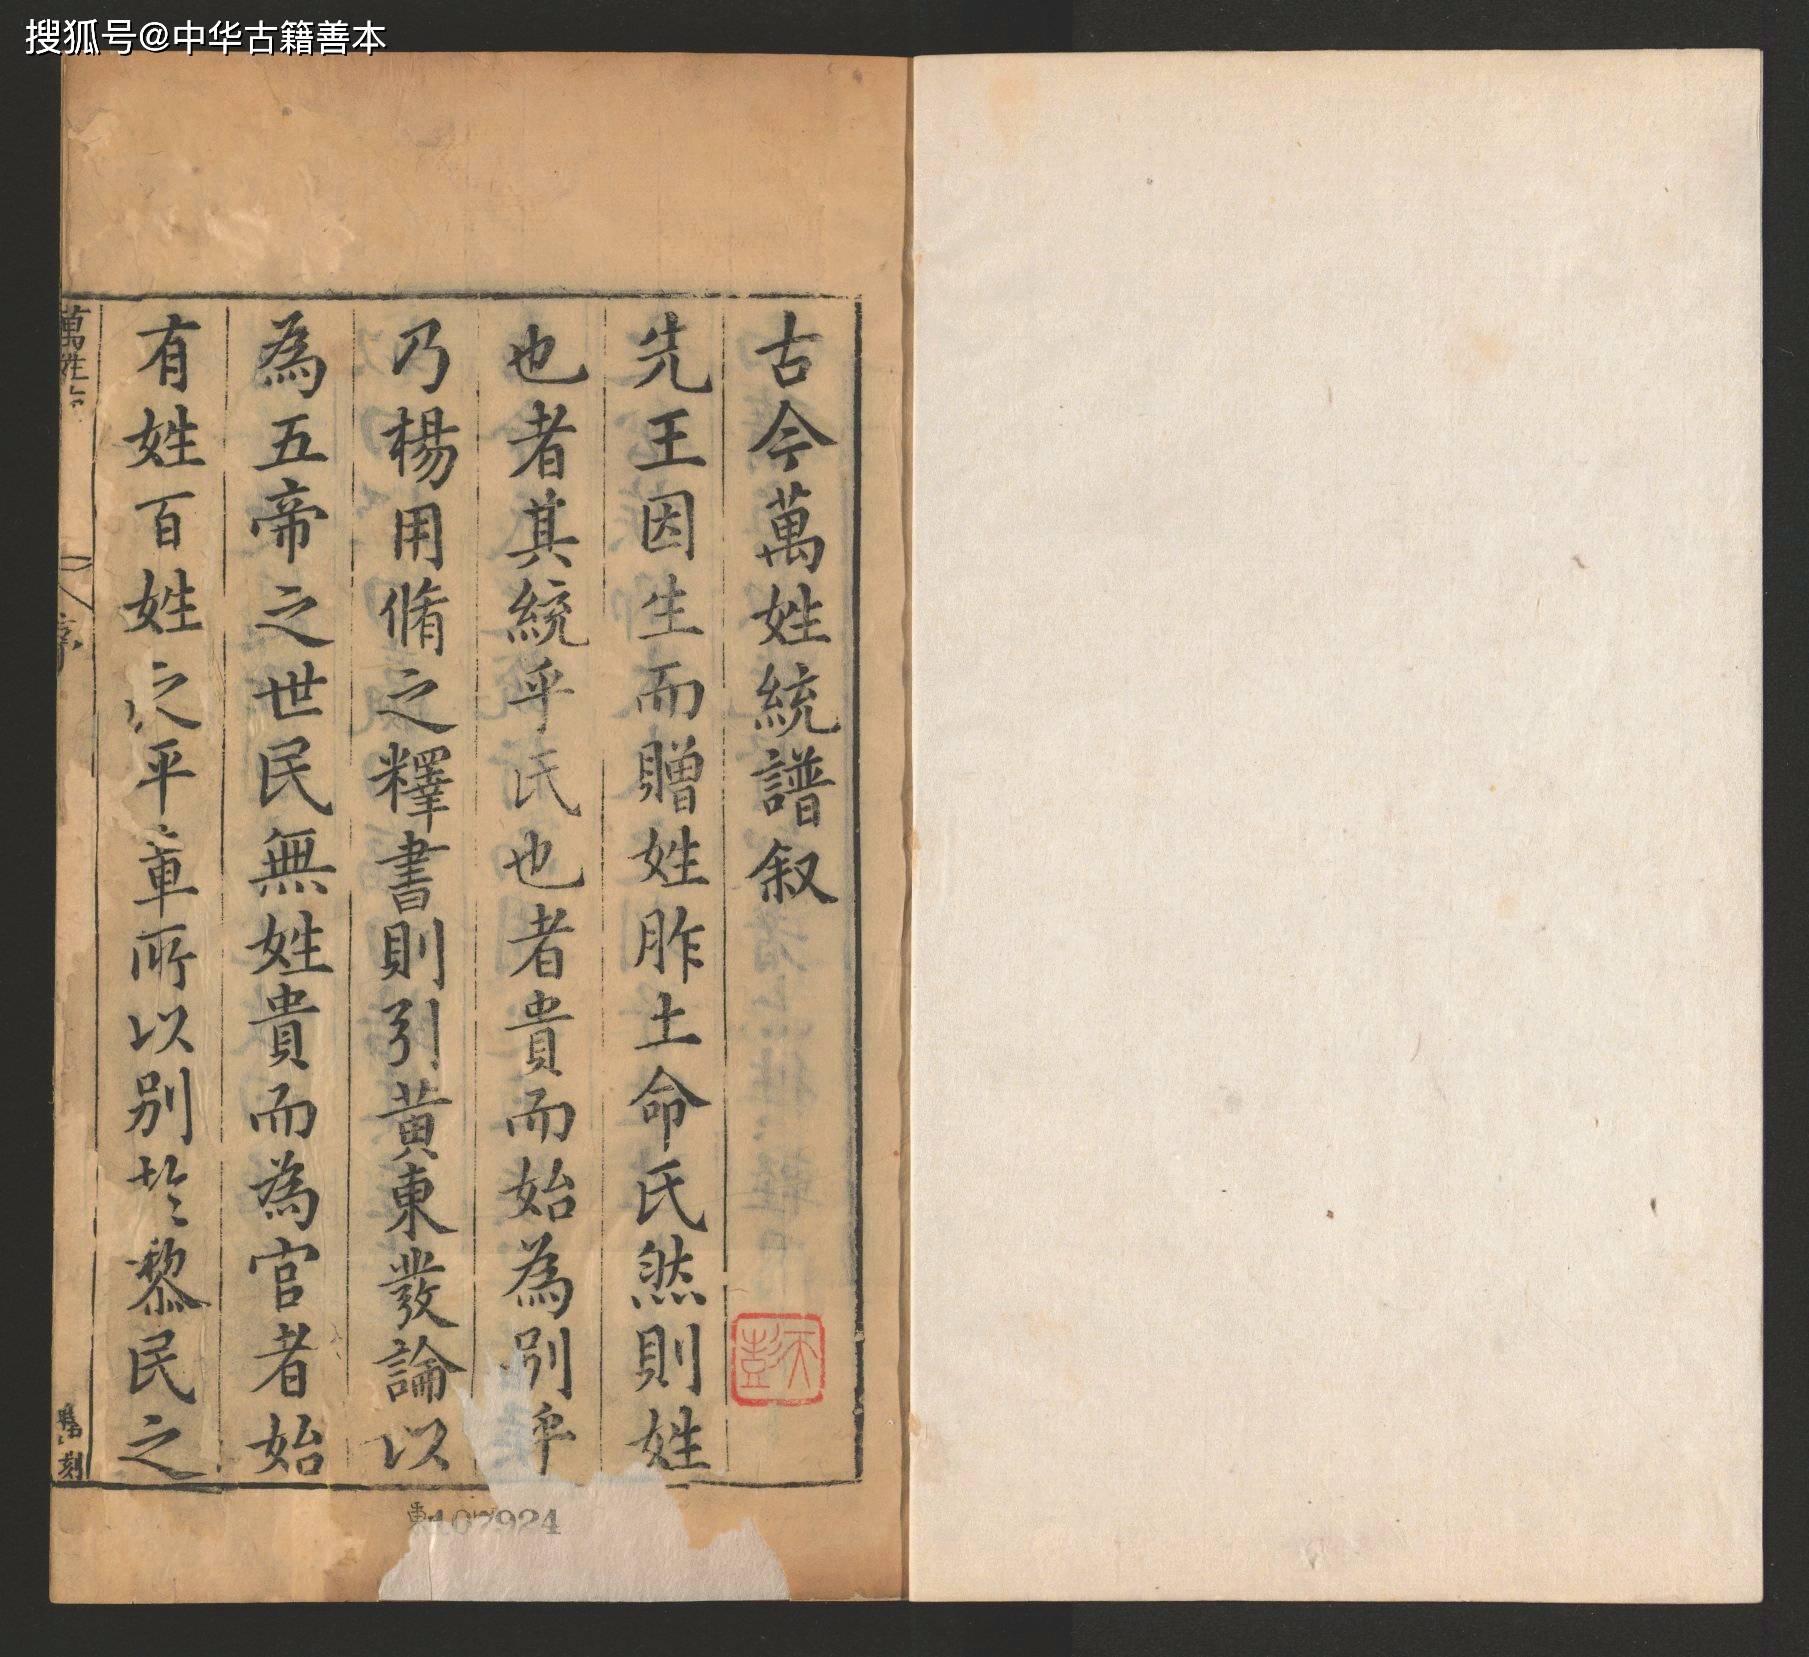 搜狐号@中华古籍善本
古今萬姓統譜叙
先王因生而贈姓胙土命氏然則姓
也者其統乎氏也者貴而始為別乎
乃楊用脩之釋書則引黄東發論以
為五帝之世民無姓貴而為官者始
有姓百姓之平章所以別於黎民之
萬姓
序
刻
107924